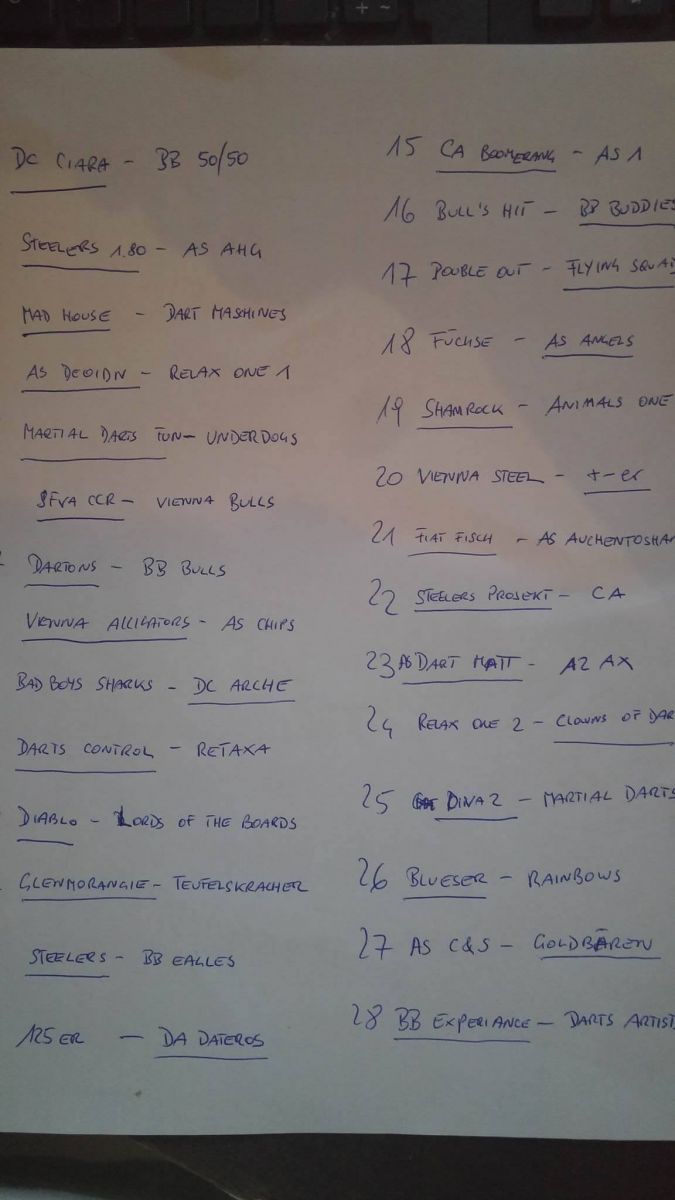 DC CIARA - BB 50/50
STEELERS 1.80 - AS AHG
MAD HOUSE - DART MASHINES
AS DECIDN - RELAX ONE 1
MARTIAL DARTS TUN - UNDERDOGS
SFVA CCR - VIENNA BULLS
DARTONS - BB BULLS
VIENNA ALLIGATORS - AS CHIPS
BAD BOYS SHARKS - DC ARCHE
DARTS CONTROL - RETAXA
DIABLO - LORDS OF THE BOARDS
GLENMORANGIE - TEUFELSKRACHER
STEELERS - BB EAGLES
125 ER - DA DATEROS
15 CA BOOMERANG - AS 1
16 BULL'S HIT - BB BUDDIES
17 DOUBLE OUT - FLYING SQUAD
18 FÜCHSE - AS ANGELS
19 SHAMROCK - ANIMALS ONE
20 VIENNA STEEL - +-er
21 FIAT FISCH - AS AUCHENTOSHAN
22 STEELERS PROJEKT - CA
23 AS DART MATT - A2 AX
24 RELAX ONE 2 - CLOWNS OF DAR
25 DINA 2 - MARTIAL DARTS
26 BLUESER - RAINBOWS
27 AS C&S - GOLDBÄREN
28 BB EXPERIANCE - DARTS ARTIST